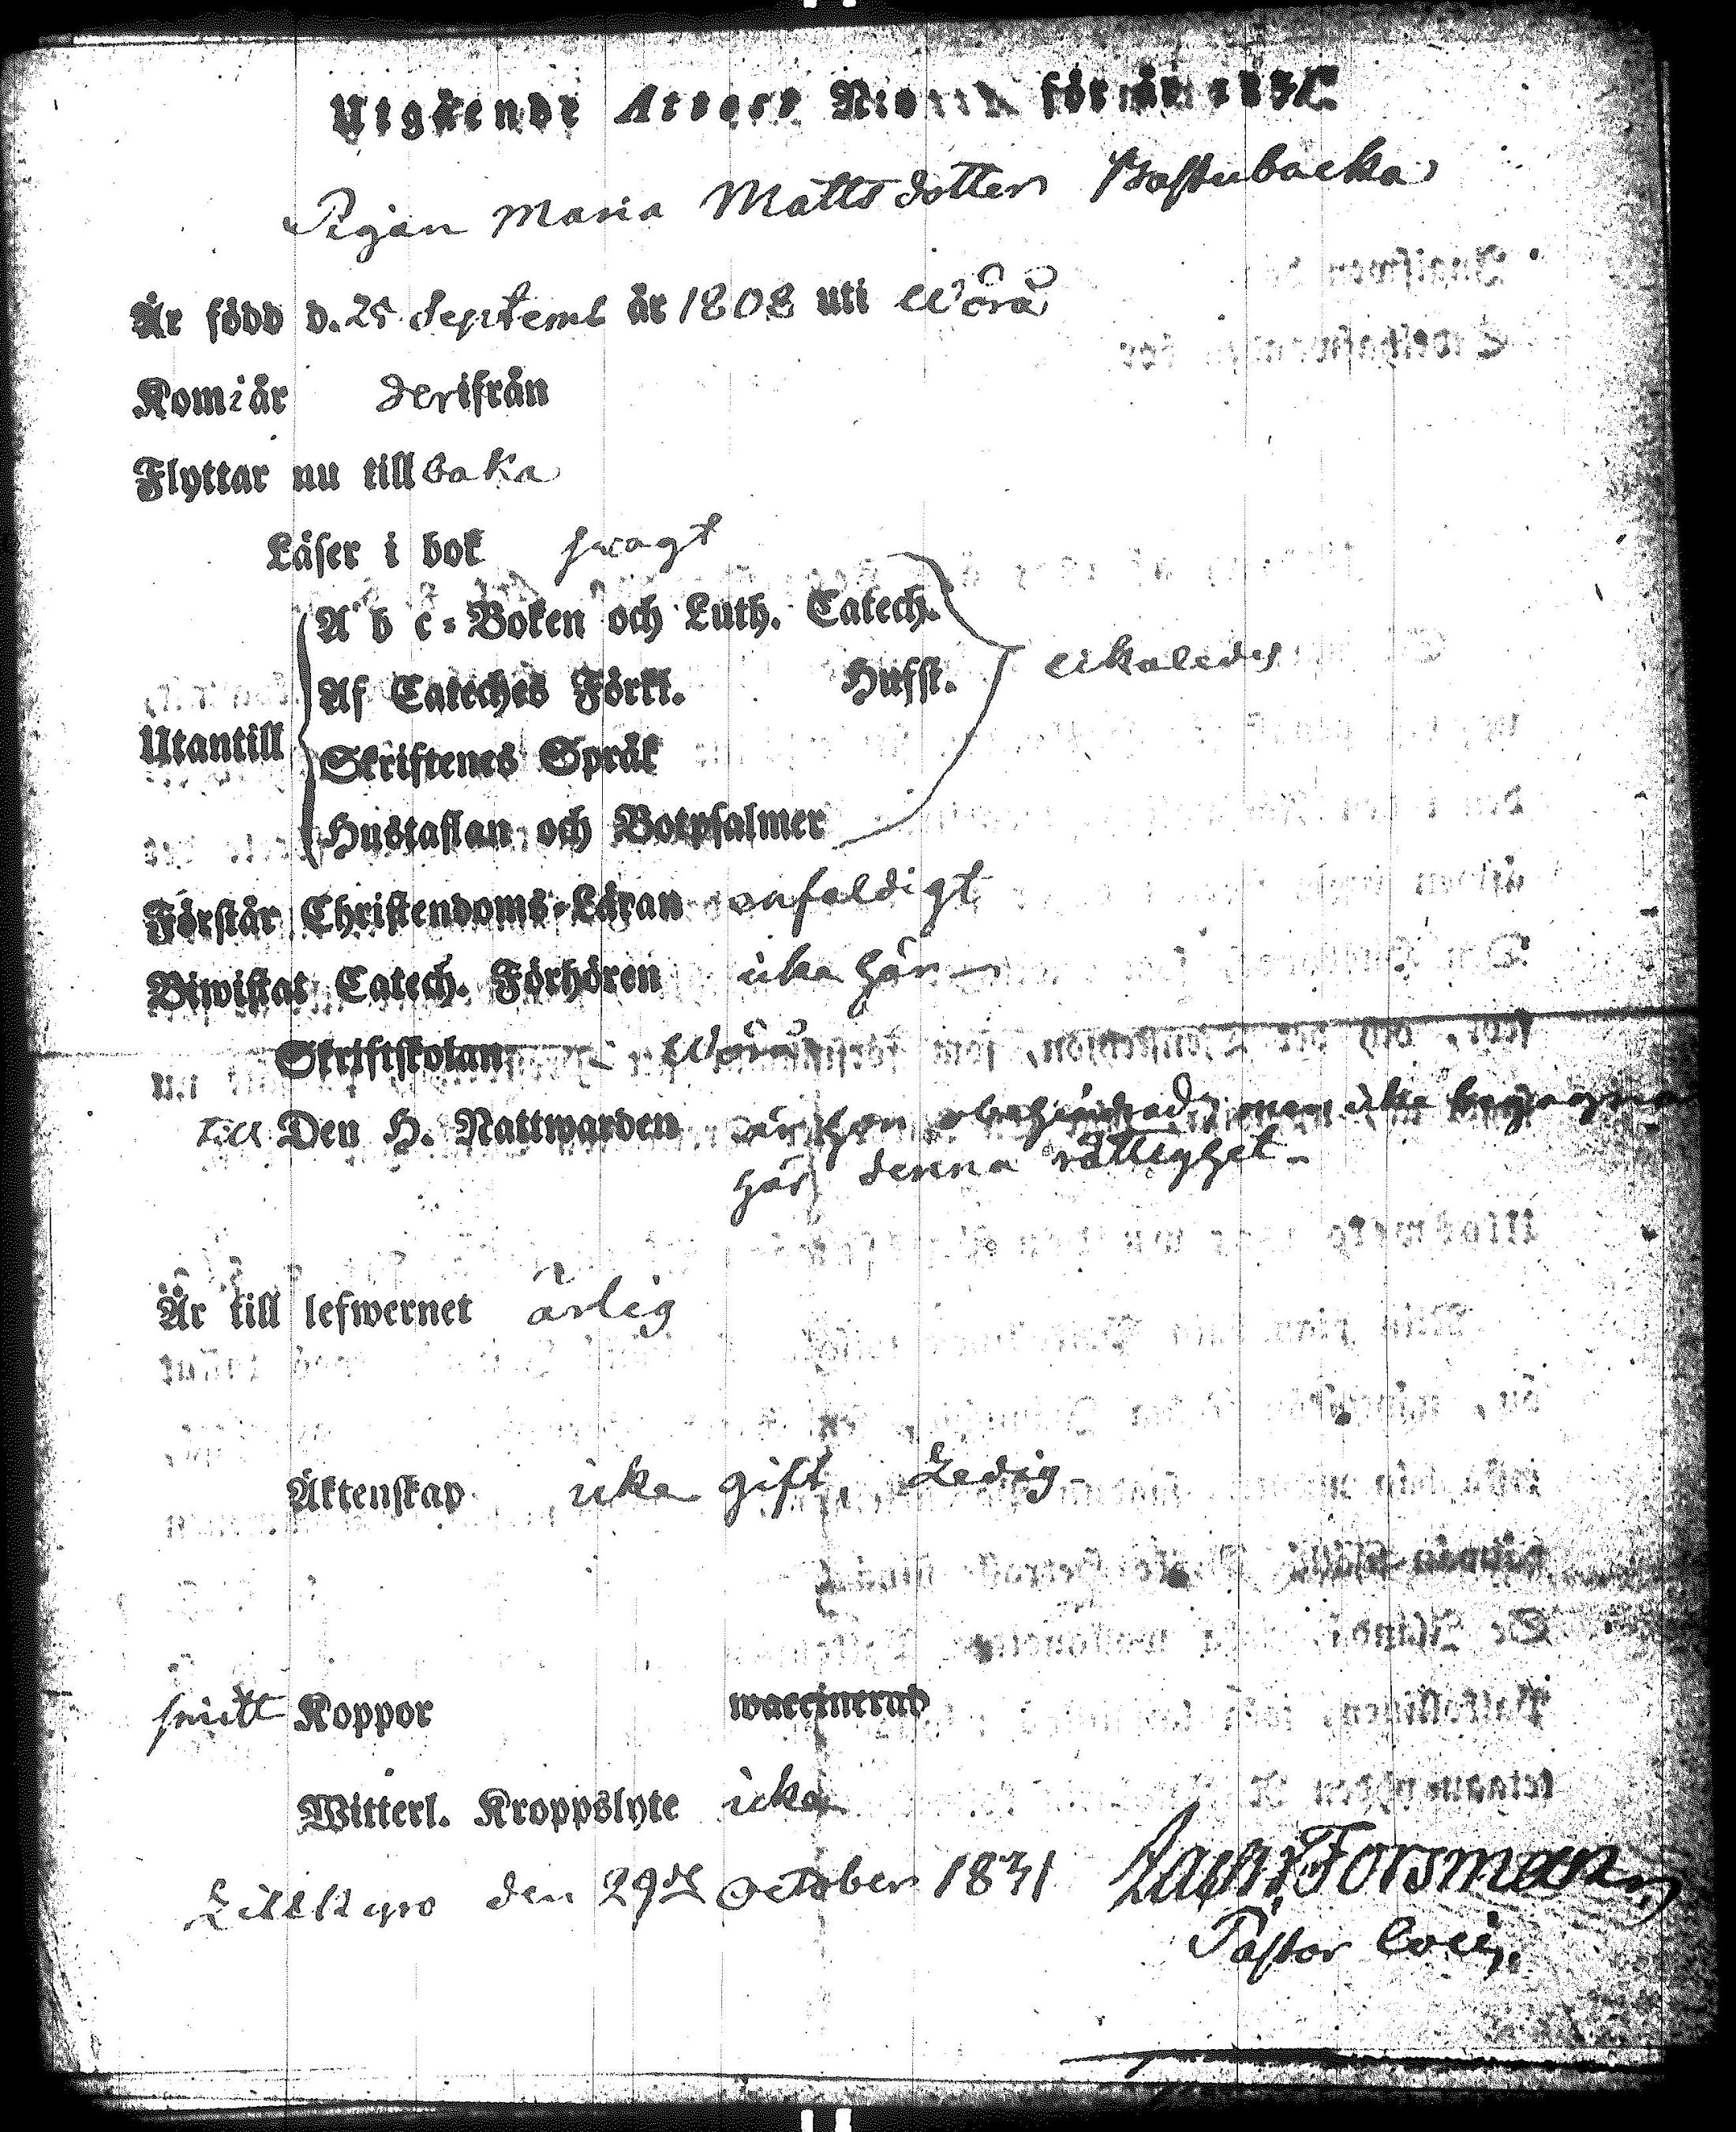 Utgående Attest för år 183
Pigan Maria Mattsdotter Bastubacka
Är född d. 25 Septemb år 1808 uti Wörå
Kom i år derifrån
Flyttar nu tillbaka
Läser i bok swagt
A b c-Boken och Luth. Catech.
Af Cateches Förkl. Hufst. likaledes
Utantill
Skriftenes Språk
Hustaflan och Botpsalmer
Förstår Christendoms-Läran enfaldigt
Biwistat Catech. Förhören icke här
Skriftskolan i Wörå
till Den H. Nattwarden är hon obehindrad, men icke
här denna rättighet
Är till lefwernet ärlig
Äktenskap icke gift, Ledig
Koppor waccinerad
Witterl. Kroppslyte icke
Lillkyro den 29de October 1831 Forsman
Pastor